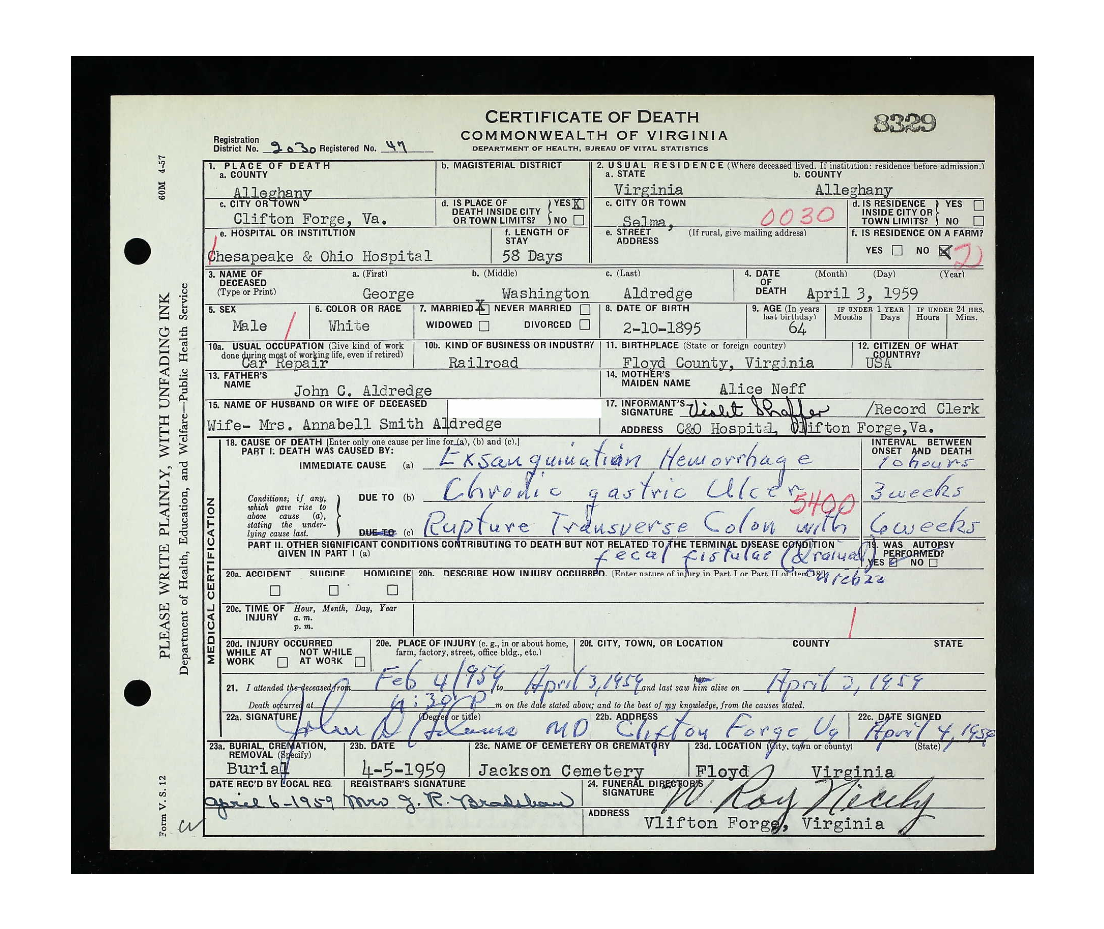 CERTIFICATE OF DEATH
COMMONWEALTH OF VIRGINIA
DEPARTMENT OF HEALTH, BUREAU OF VITAL STATISTICS
8329
Registration District No. 2030 Registered No. 47
60M 4-57
PLEASE WRITE PLAINLY, WITH UNFADING INK
Department of Health, Education, and Welfare—Public Health Service
Form V. S. 12
1. PLACE OF DEATH
a. COUNTY
Alleghany
b. MAGISTERIAL DISTRICT
2. USUAL RESIDENCE (Where deceased lived. If institution: residence before admission.)
a. STATE b. COUNTY
Virginia Alleghany
c. CITY OR TOWN
Clifton Forge, Va.
d. IS PLACE OF DEATH INSIDE CITY OR TOWN LIMITS? YES X NO
c. CITY OR TOWN
Selma, 0030
d. IS RESIDENCE INSIDE CITY OR TOWN LIMITS? YES NO
e. HOSPITAL OR INSTITUTION
Chesapeake & Ohio Hospital
f. LENGTH OF STAY
58 Days
e. STREET ADDRESS (If rural, give mailing address)
f. IS RESIDENCE ON A FARM?
YES NO X 2
3. NAME OF DECEASED (Type or Print) a. (First) b. (Middle) c. (Last)
George Washington Aldredge
4. DATE OF DEATH (Month) (Day) (Year)
April 3, 1959
5. SEX
Male
6. COLOR OR RACE
White
7. MARRIED X NEVER MARRIED
WIDOWED DIVORCED
8. DATE OF BIRTH
2-10-1895
9. AGE (In years last birthday)
64
IF UNDER 1 YEAR Months Days
IF UNDER 24 HRS. Hours Mins.
10a. USUAL OCCUPATION (Give kind of work done during most of working life, even if retired)
Car Repair
10b. KIND OF BUSINESS OR INDUSTRY
Railroad
11. BIRTHPLACE (State or foreign country)
Floyd County, Virginia
12. CITIZEN OF WHAT COUNTRY?
USA
13. FATHER'S NAME
John C. Aldredge
14. MOTHER'S MAIDEN NAME
Alice Neff
15. NAME OF HUSBAND OR WIFE OF DECEASED
Wife- Mrs. Annabell Smith Aldredge
17. INFORMANT'S SIGNATURE Violet Shaffer /Record Clerk
ADDRESS C&O Hospital, Clifton Forge,Va.
MEDICAL CERTIFICATION
18. CAUSE OF DEATH [Enter only one cause per line for (a), (b) and (c).]
PART I. DEATH WAS CAUSED BY:
INTERVAL BETWEEN ONSET AND DEATH
IMMEDIATE CAUSE (a) Exsanguination Hemorrhage 10 hours
Conditions, if any, which gave rise to above cause (a), stating the underlying cause last.
DUE TO (b) Chronic gastric Ulcer 3 weeks
5400
DUE TO (c) Rupture Transverse Colon with 6 weeks
PART II. OTHER SIGNIFICANT CONDITIONS CONTRIBUTING TO DEATH BUT NOT RELATED TO THE TERMINAL DISEASE CONDITION GIVEN IN PART I (a)
fecal fistulae
19. WAS AUTOPSY PERFORMED?
YES NO
20a. ACCIDENT SUICIDE HOMICIDE
20b. DESCRIBE HOW INJURY OCCURRED. (Enter nature of injury in Part I or Part II of item 18.)
20c. TIME OF INJURY Hour, Month, Day, Year
a. m.
p. m.
20d. INJURY OCCURRED
WHILE AT WORK NOT WHILE AT WORK
20e. PLACE OF INJURY (e. g., in or about home, farm, factory, street, office bldg., etc.)
20f. CITY, TOWN, OR LOCATION COUNTY STATE
21. I attended the deceased from Feb 4 1959 to April 3, 1959 and last saw him alive on April 3, 1959
Death occurred at m on the date stated above; and to the best of my knowledge, from the causes stated.
22a. SIGNATURE (Degree or title)
John MD
22b. ADDRESS
Clifton Forge Va
22c. DATE SIGNED
April 4, 1959
23a. BURIAL, CREMATION, REMOVAL (Specify)
Burial
23b. DATE
4-5-1959
23c. NAME OF CEMETERY OR CREMATORY
Jackson Cemetery
23d. LOCATION (City, town or county) (State)
Floyd Virginia
DATE REC'D BY LOCAL REG.
April 6-1959
REGISTRAR'S SIGNATURE
Mrs J. R. Bradshaw
24. FUNERAL DIRECTOR'S SIGNATURE
W. Roy Nicely
ADDRESS
Vlifton Forge, Virginia